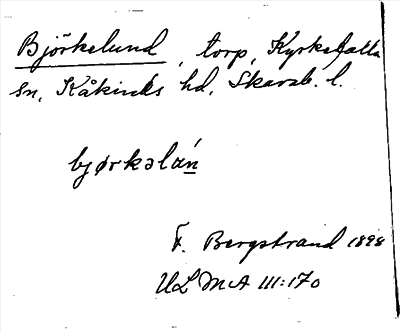 Björkelund, torp, Kyrkefalla
sn, Kåkinds hd, Skarab. l.
bjørkəlán
F. Bergstrand 1898
ULMA III:170